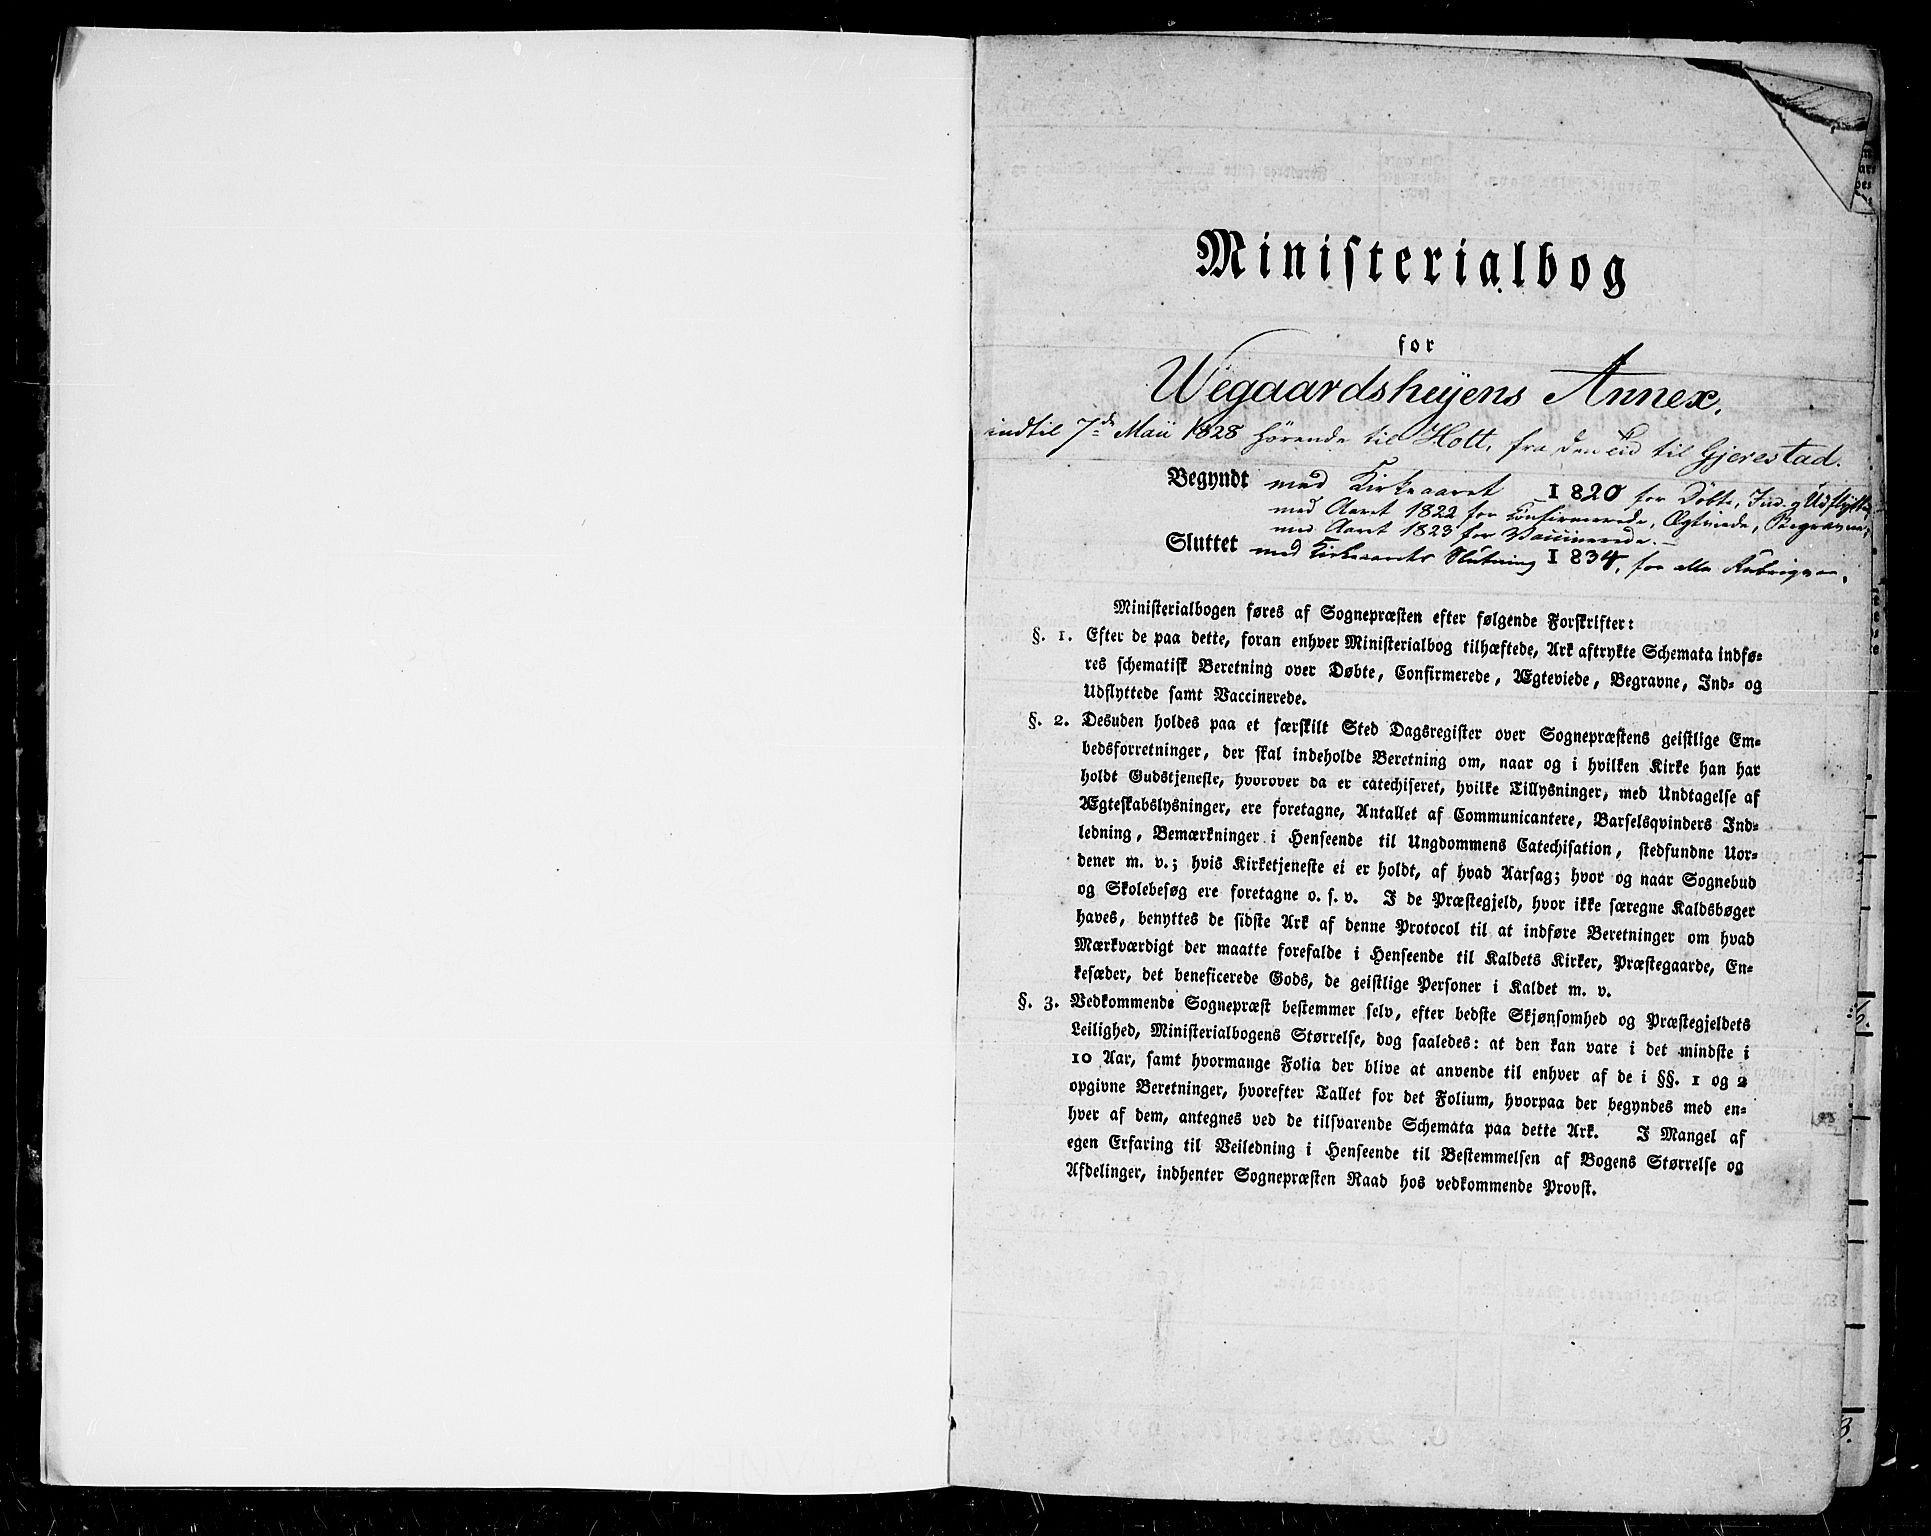 Ministerialbog
for
Wegaardsheyens Annex,
indtil 7de Maii 1828 hørende til Holt, fra den tid til Gjerestad.
Begyndt med Kirkeaaret 1820 for Døbte, Ind og Udflytte,
med Aaret 1822 for Confirmerede, Ægteviede, Begravne,
med Aaret 1823 for Vaccinerede.
Sluttet med Kirkeaarets Slutning 1834, for alle Rubriqver.
Ministerialbogen føres af Sognepræsten efter følgende Forskrifter:
§. 1. Efter de paa dette, foran enhver Ministerialbog tilhæftede, Ark aftrykte Schemata indfø-
res schematisk Beretning over Døbte, Confirmerede, Ægteviede, Begravne, Ind- og
Udflyttede samt Vaccinerede.
§. 2. Desuden holdes paa et særskilt Sted Dagsregister over Sognepræstens geistlige Em-
bedsforretninger, der skal indeholde Beretning om, naar og i hvilken Kirke han har
holdt Gudstjeneste, hvorover da er catechiseret, hvilke Tillysninger, med Undtagelse af
Ægteskabslysninger, ere foretagne, Antallet af Communicantere, Barselqvinders Ind-
ledning, Bemærkninger i Henseende til Ungdommens Catechisation, stedfundne Uor-
dener m. v.; hvis Kirketjeneste ei er holdt, af hvad Aarsag; hvor og naar Sognebud
og Skolebesøg ere foretagne o. s. v. I de Præstegjeld, hvor ikke særegne Kaldsbøger
haves, benyttes de sidste Ark af denne Protocol til at indføre Beretninger om hvad
Mærkværdigt der maatte forefalde i Henseende til Kaldets Kirker, Præstegaarde, En-
kesæder, det beneficerede Gods, de geistlige Personer i Kaldet m. v.
§. 3. Vedkommende Sognepræst bestemmer selv, efter bedste Skjønsomhed og Præstegjeldets
Leilighed, Ministerialbogens Størrelse, dog saaledes: at den kan vare i det mindste i
10 Aar, samt hvormange Folia der blive at anvende til enhver af de i §§. 1 og 2
opgivne Beretninger, hvorefter Tallet for det Folium, hvorpaa der begyndes med en-
hver af dem, antegnes ved de tilsvarende Schemata paa dette Ark. I Mangel af
egen Erfaring til Veiledning i Henseende til Bestemmelsen af Bogens Størrelse og
Afdelinger, indhenter Sognepræsten Raad hos vedkommende Provst.